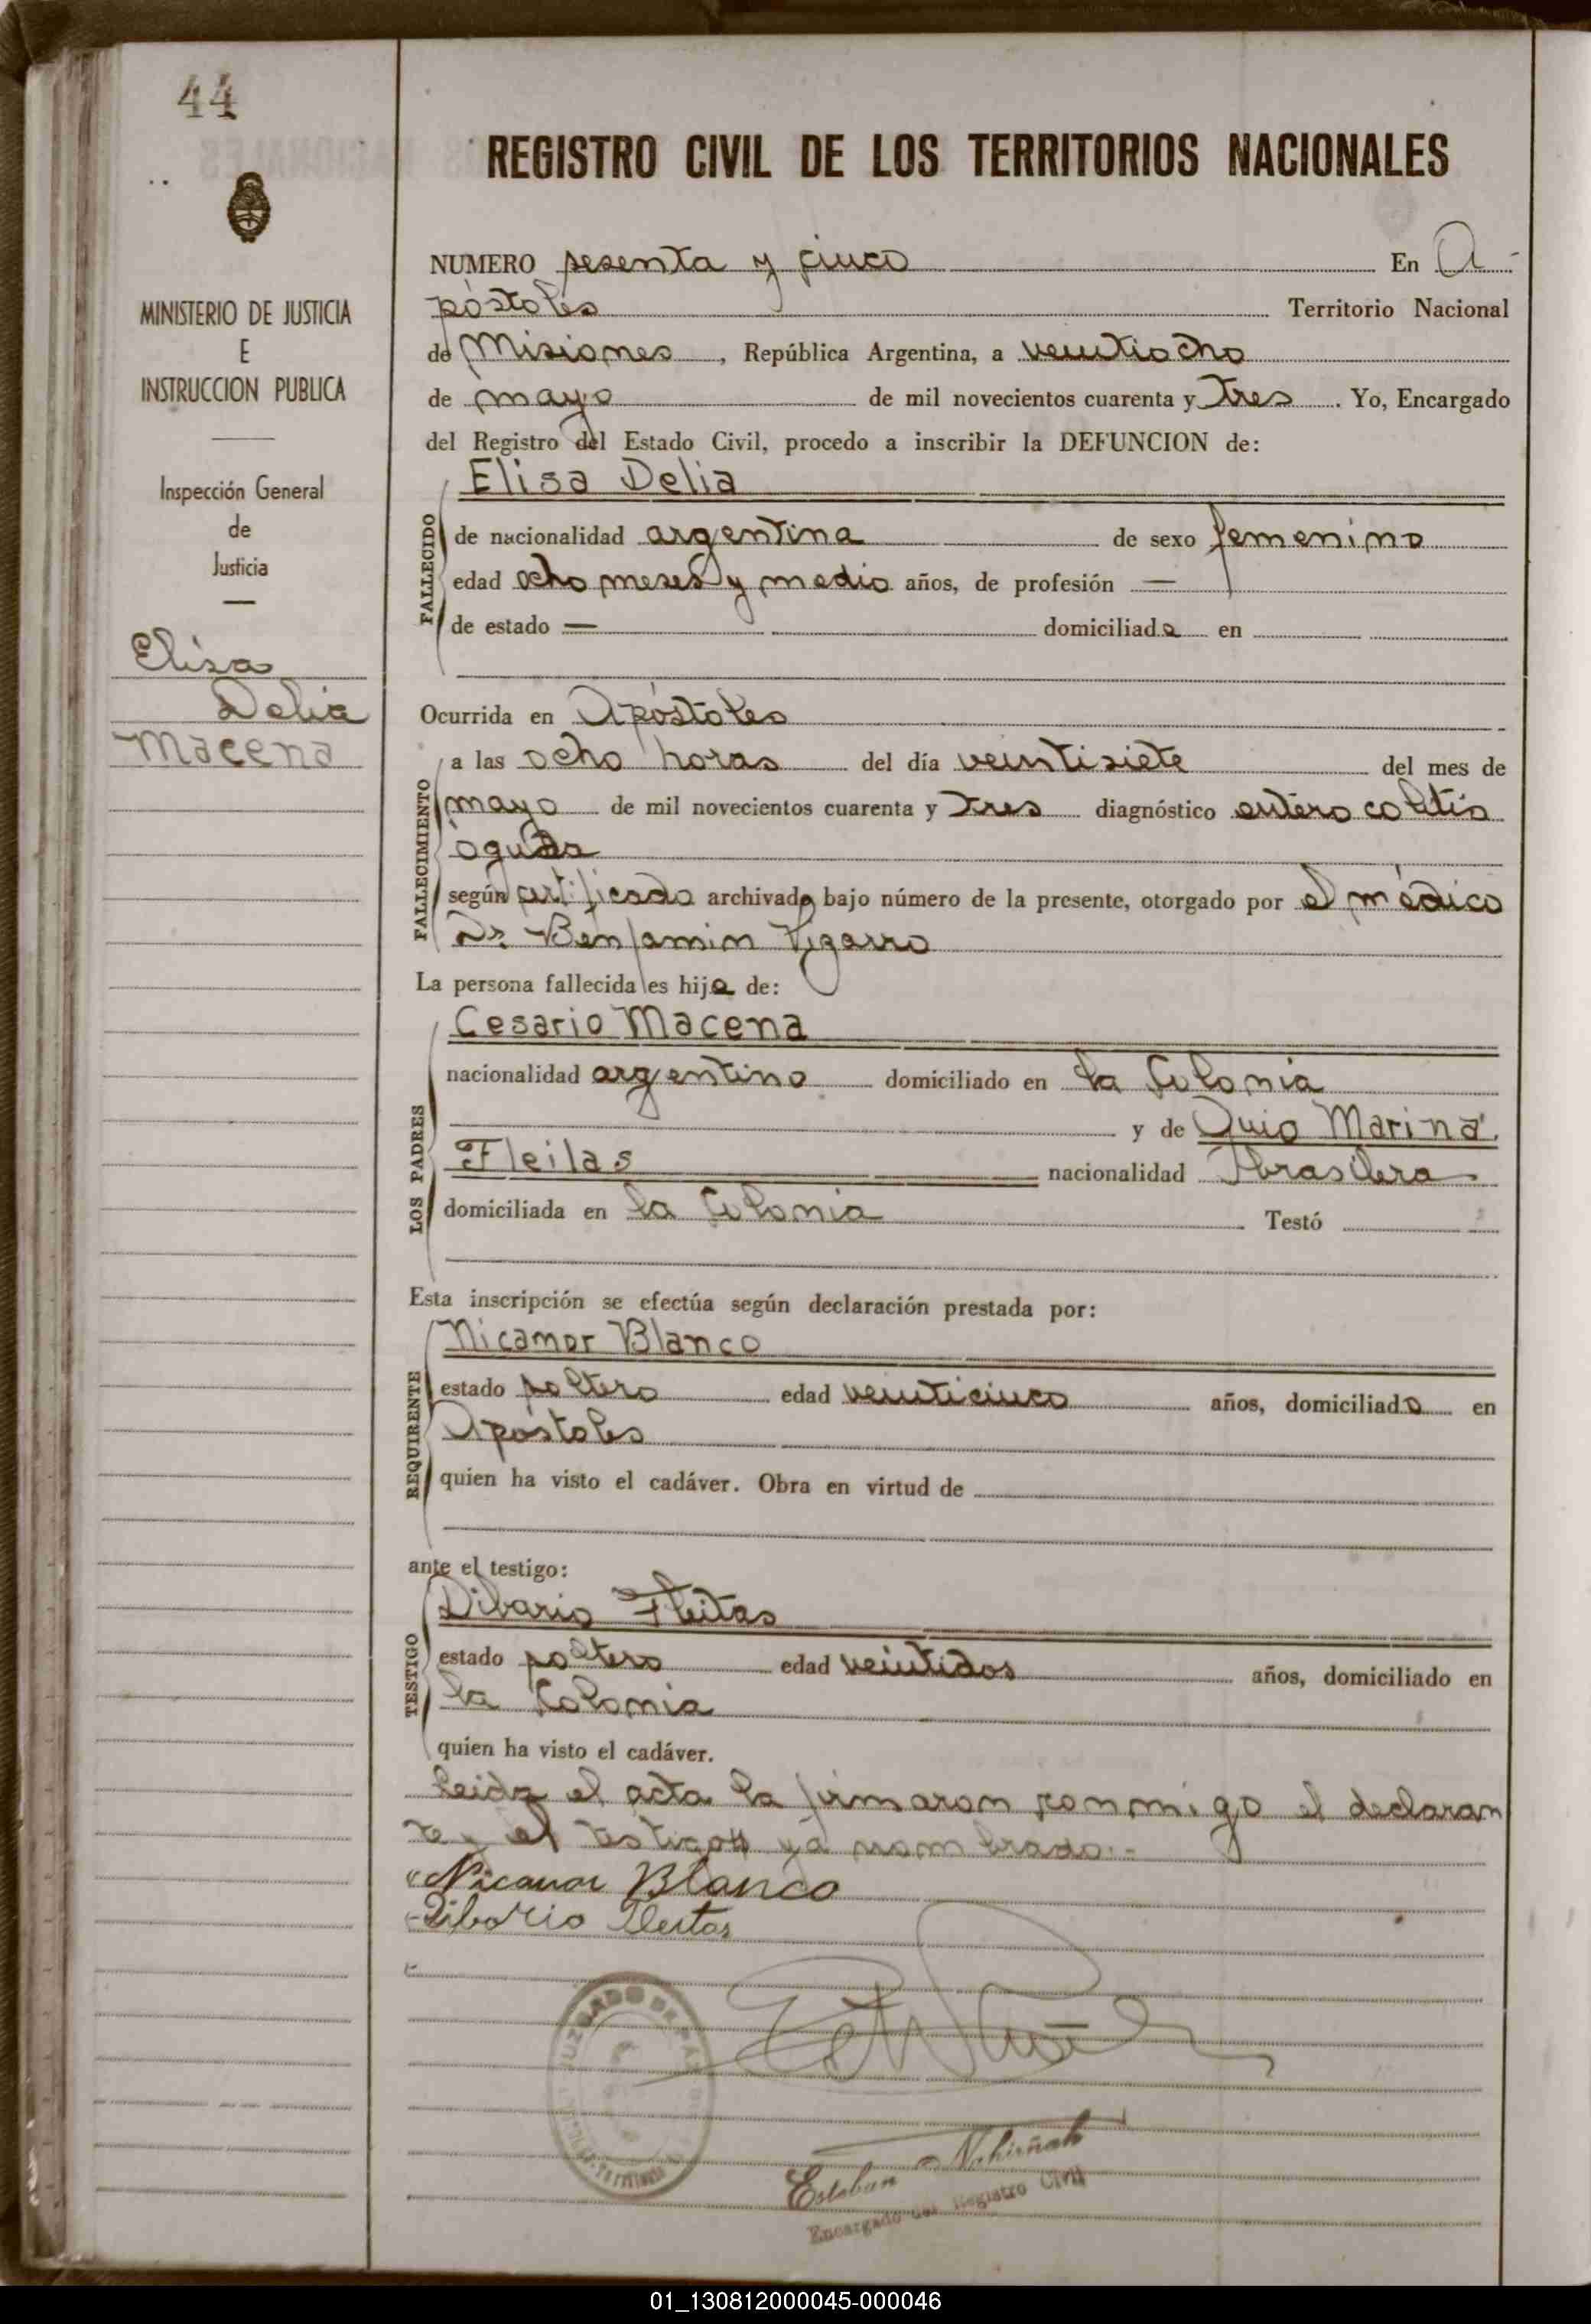 44
REGISTRO CIVIL DE LOS TERRITORIOS NACIONALES
MINISTERIO DE JUSTICIA
E
INSTRUCCION PUBLICA
Inspección General
de
Justicia
Elisa
Delia
Macena
NUMERO sesenta y cinco En A-
póstoles Territorio Nacional
de Misiones, República Argentina, a veintiocho
de mayo de mil novecientos cuarenta y tres. Yo, Encargado
del Registro del Estado Civil, procedo a inscribir la DEFUNCION de:
Elisa Delia
FALLECIDO
de nacionalidad argentina de sexo femenino
edad ocho meses y medio años, de profesión —
de estado — domiciliada en
Ocurrida en Apóstoles
FALLECIMIENTO
a las ocho horas del día veintisiete del mes de
mayo de mil novecientos cuarenta y tres diagnóstico entero colitis
aguda
según certificado archivado bajo número de la presente, otorgado por el médico
Dr. Benjamin
La persona fallecida es hija de:
LOS PADRES
Cesario Macena
nacionalidad argentino domiciliado en la Colonia
y de Marina
Fleitas nacionalidad brasilera
domiciliada en la Colonia Testó
Esta inscripción se efectúa según declaración prestada por:
REQUIRENTE
Nicamor Blanco
estado soltero edad veinticinco años, domiciliado en
Apóstoles
quien ha visto el cadáver. Obra en virtud de
ante el testigo:
TESTIGO
Dibario Fleitas
estado soltero edad veintidos años, domiciliado en
la Colonia
quien ha visto el cadáver.
Leida el acta la firmaron conmigo el declaran
te y el testigo ya nombrado.-
Nicanor Blanco
Liborio Fleitas
JUZGADO DE PAZ
Territorio
Esteban Nahirñak
Encargado del Registro Civil
01_130812000045-000046